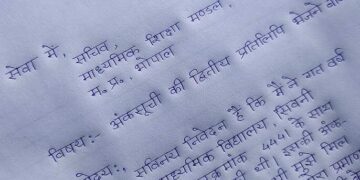 सेवा में, सचिव,
माध्यमिक शिक्षा मण्डल,
म. प्र. भोपाल
विषय:- अंकसूची की द्वितीय प्रतिलिपि भेजने
सविनय निवेदन है कि मैंने गत वर्ष
माध्यमिक विद्यालय (सिवनी
4441 के साथ
थी। इसकी अंक-
मुझे मिल